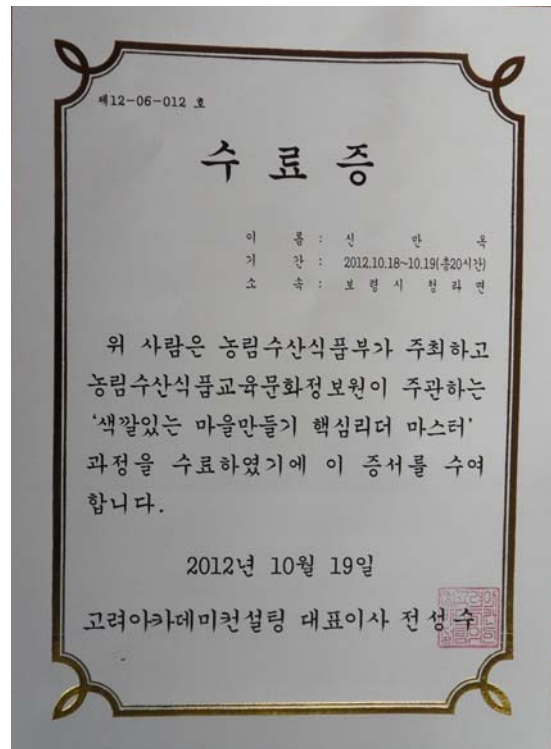 제12-06-012 호
수 료 증
이 름 : 신 만 옥
기 간 : 2012.10.18~10.19(총20시간)
소 속 : 보 령 시 청 라 면
위 사람은 농림수산식품부가 주최하고
농림수산식품교육문화정보원이 주관하는
‘색깔있는 마을만들기 핵심리더 마스터’
과정을 수료하였기에 이 증서를 수여
합니다.
2012년 10월 19일
고려아카데미컨설팅 대표이사 전성수